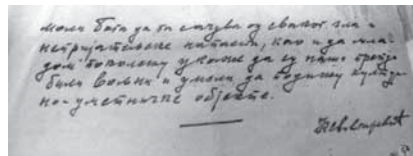 моли бога да га сачува од сваког зла и
непријатељске напасти, као и да мла-
дом поколењу укаже да су наши преци
били вољни и умели да подижу култур-
но-уметничке објекте.